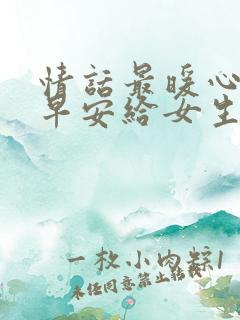 情話最暖心
早安給女生
一枚小肉粽1
未經同意禁止轉載